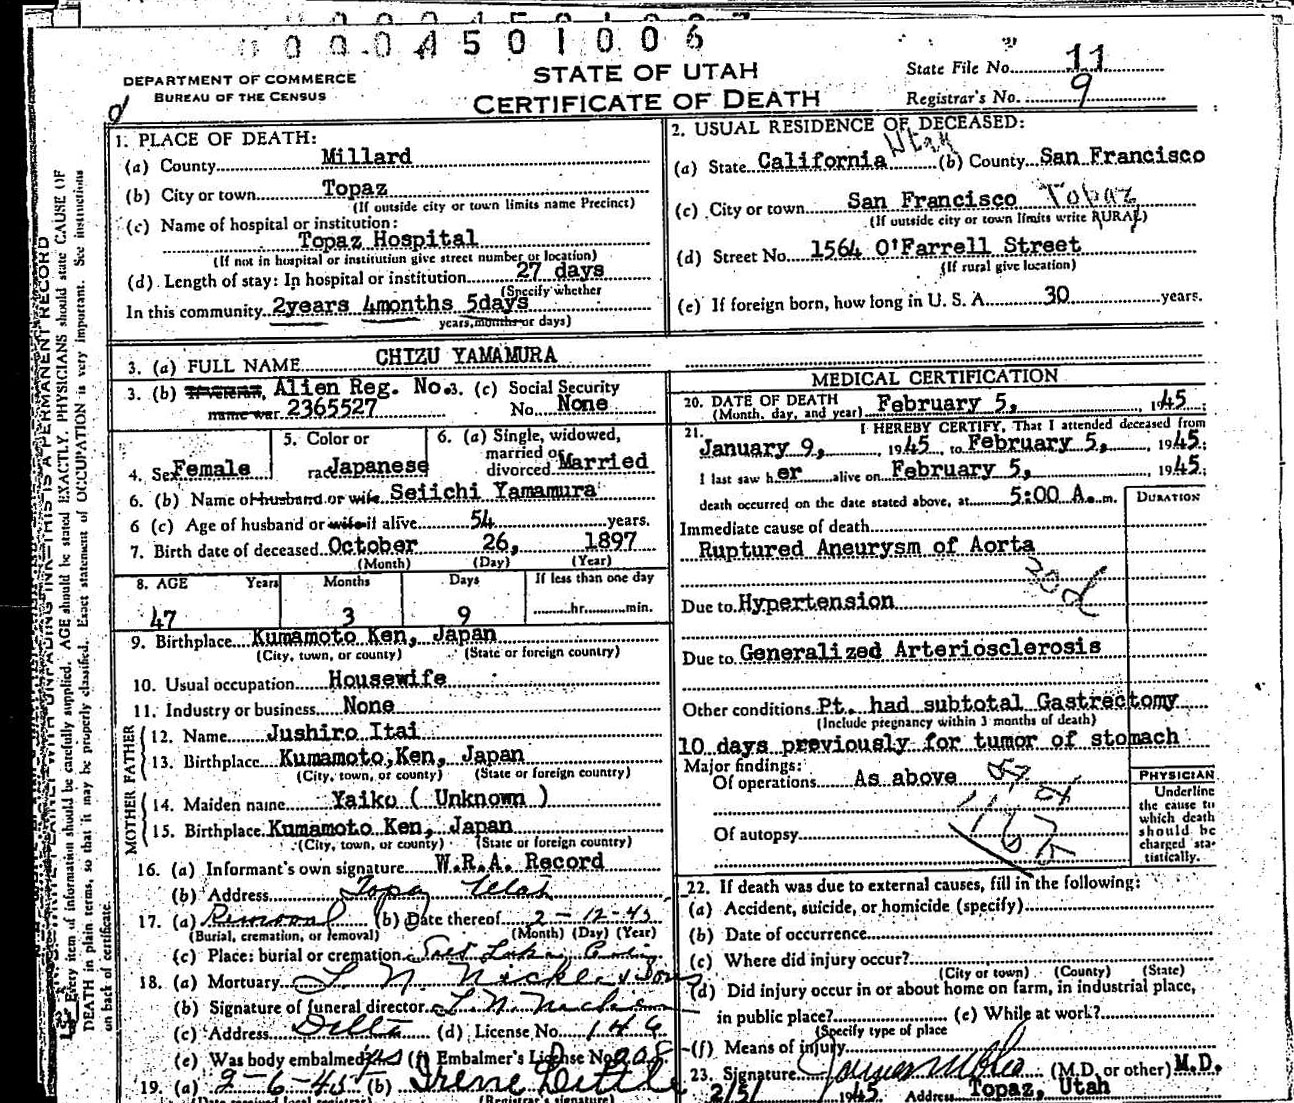 0004501006
DEPARTMENT OF COMMERCE
BUREAU OF THE CENSUS
STATE OF UTAH
CERTIFICATE OF DEATH
State File No. 11
Registrar's No. 9
1. PLACE OF DEATH:
(a) County Millard
(b) City or town Topaz
(If outside city or town limits name Precinct)
(c) Name of hospital or institution:
Topaz Hospital
(If not in hospital or institution give street number or location)
(d) Length of stay: In hospital or institution 27 days
(Specify whether
In this community 2years 4months 5days
years, months or days)
2. USUAL RESIDENCE OF DECEASED:
(a) State California Utah (b) County San Francisco
(c) City or town San Francisco Topaz
(If outside city or town limits write RURAL)
(d) Street No. 1564 O'Farrell Street
(If rural give location)
(e) If foreign born, how long in U. S. A. 30 years.
3. (a) FULL NAME CHIZU YAMAMURA
3. (b) If veteran, Alien Reg. No. 3. (c) Social Security
name war 2365527 No. None
4. Sex Female
5. Color or
race Japanese
6. (a) Single, widowed,
married or
divorced Married
6. (b) Name of husband or wife Seiichi Yamamura
6 (c) Age of husband or wife if alive 54 years.
7. Birth date of deceased October 26, 1897
(Month) (Day) (Year)
8. AGE Years Months Days If less than one day
47 3 9 hr. min.
9. Birthplace Kumamoto Ken, Japan
(City, town, or county) (State or foreign country)
10. Usual occupation Housewife
11. Industry or business None
FATHER
12. Name Jushiro Itai
13. Birthplace Kumamoto, Ken, Japan
(City, town, or county) (State or foreign country)
MOTHER
14. Maiden name Yaiko ( Unknown )
15. Birthplace Kumamoto Ken, Japan
(City, town, or county) (State or foreign country)
16. (a) Informant's own signature W.R.A. Record
(b) Address Topaz Utah
17. (a) Removal (b) Date thereof 2-12-45
(Burial, cremation, or removal) (Month) (Day) (Year)
(c) Place: burial or cremation Salt Lake
18. (a) Mortuary
(b) Signature of funeral director
(c) Address Delta (d) License No. 146
(e) Was body embalmed? yes (f) Embalmer's License No. 208
19. (a) 2-6-45 (b) Irene
(Date received local registrar) (Registrar's signature)
MEDICAL CERTIFICATION
20. DATE OF DEATH
(Month, day, and year) February 5, 1945.
21. I HEREBY CERTIFY, That I attended deceased from
January 9, 1945, to February 5, 1945.
I last saw her alive on February 5, 1945.
death occurred on the date stated above, at 5:00 A. m.
DURATION
Immediate cause of death
Ruptured Aneurysm of Aorta
Due to Hypertension
Due to Generalized Arteriosclerosis
Other conditions Pt. had subtotal Gastrectomy
(Include pregnancy within 3 months of death)
10 days previously for tumor of stomach
Major findings:
Of operations As above
Of autopsy
PHYSICIAN
Underline
the cause to
which death
should be
charged sta-
tistically.
22. If death was due to external causes, fill in the following:
(a) Accident, suicide, or homicide (specify)
(b) Date of occurrence
(c) Where did injury occur?
(City or town) (County) (State)
(d) Did injury occur in or about home on farm, in industrial place,
in public place? (e) While at work?
(Specify type of place
(f) Means of injury
23. Signature (M.D. or other) M.D.
2/5/ 1945 Address Topaz, Utah
THIS IS A PERMANENT RECORD
Every item of information should be carefully supplied. AGE should be stated EXACTLY. PHYSICIANS should state CAUSE OF
DEATH in plain terms, so that it may be properly classified. Exact statement of OCCUPATION is very important. See instructions
on back of certificate.